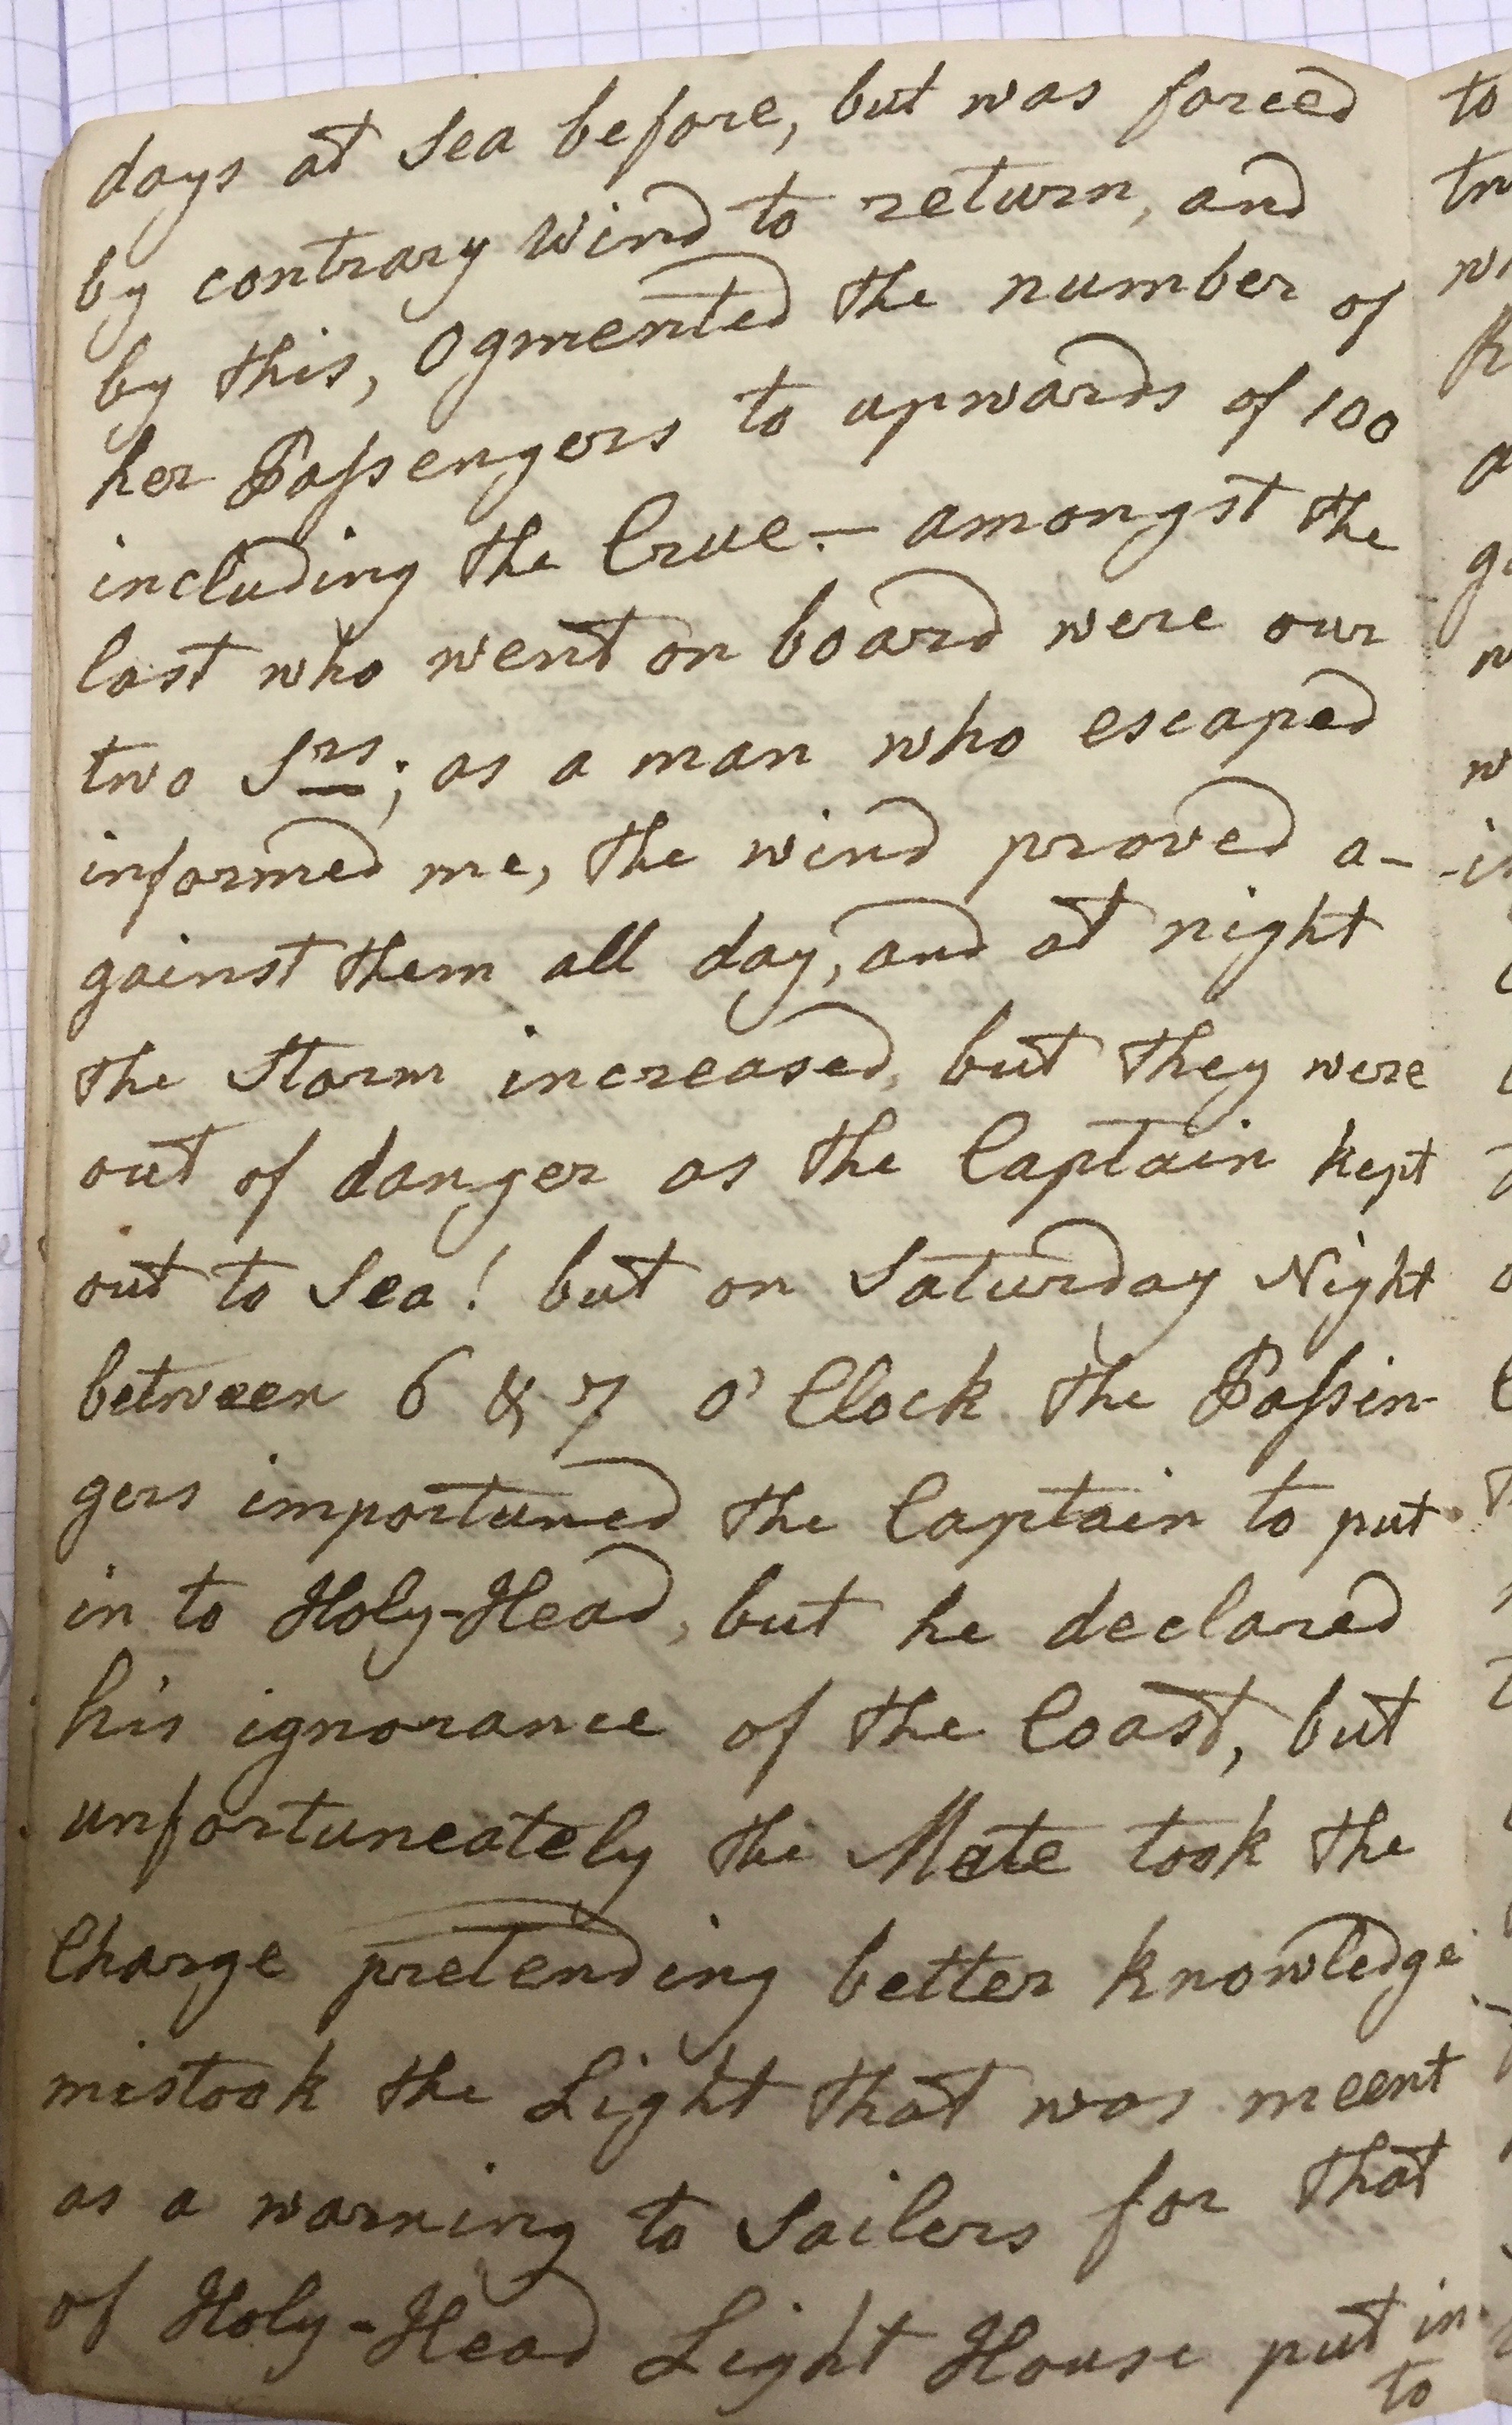 days at Sea before, but was forced
by contrary Wind to return, and
by this, Ogmented the number of
her Paſsengers to upwards of 100
including the Crue. – amongst the
last who went on board were our
two Srs; as a man who escaped
informed me, the wind proved a-
gainst them all day, and at night
the Storm increased, but they were
out of danger as the Captain kept
out to Sea! but on Saturday Night
between 6 & 7 o'Clock the Paſsin-
gers importuned the Captain to put
in to Holy-Head, but he declared
his ignorance of the Coast, but
unfortuneately the Mate took the
Charge pretending better knowledge
mistook the Light that was meent
as a warning to Sailers for that
of Holy-Head Light House put in
to